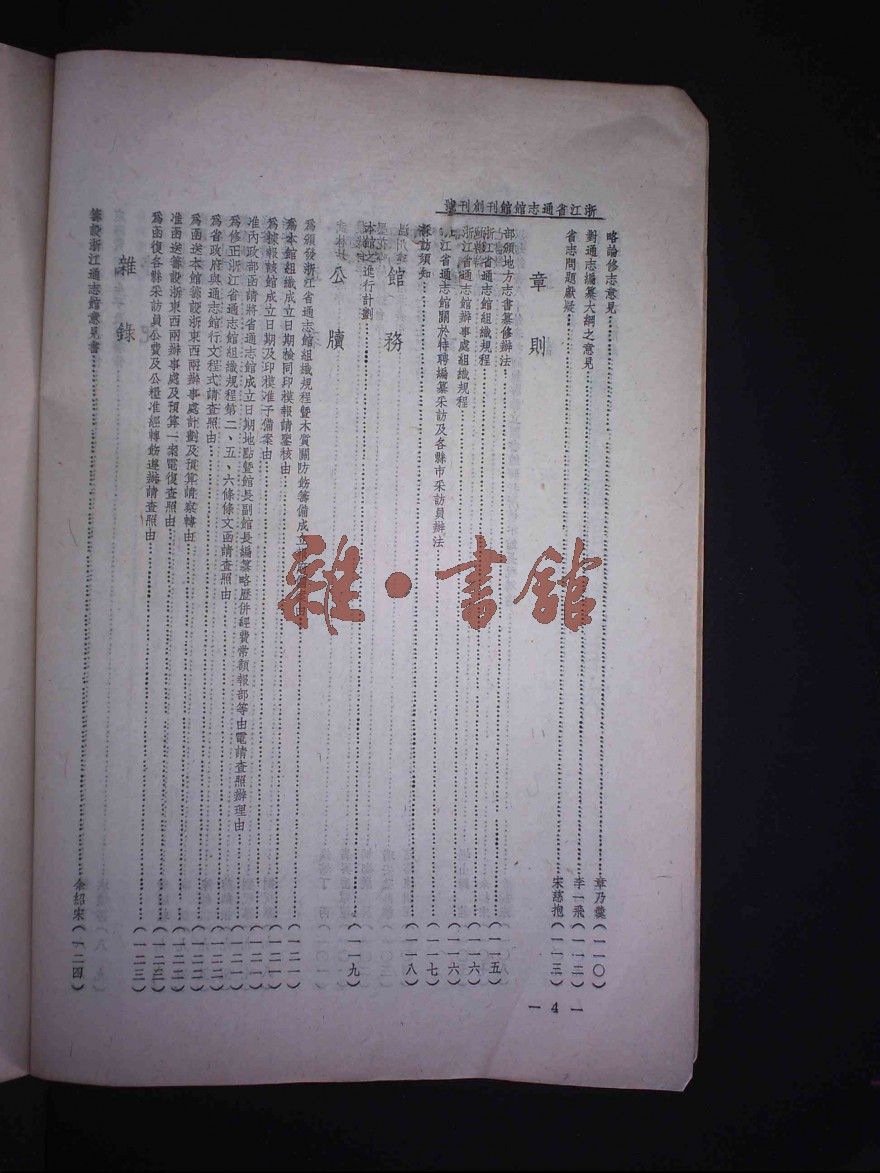 浙江省通志館館刊創刊號
略論修志意見……章乃羹(一一〇)
對通志編纂大綱之意見……李一飛(一一二)
省志問題獻疑……宋慈抱(一一三)
章則
部頒地方志書纂修辦法……(一一五)
浙江省通志館組織規程……(一一六)
浙江省通志館辦事處組織規程……(一一六)
江省通志館關於特聘編纂采訪及各縣市采訪員辦法……(一一七)
採訪須知……(一一八)
館務
本館之進行計劃……(一一九)
公牘
為頒發浙江省通志館組織規程暨木質關防飭籌備成立……由……(一二一)
為本館組織成立日期檢同印模報請鑒核由……(一二一)
為據報該館成立日期及印模准予備案由……(一二一)
准內政部函請將省通志館成立日期地點暨館長副館長編纂略歷併經費常額報部等由電請查照辦理由……(一二一)
為修正浙江省通志館組織規程第二、五、六條條文函請查照由……(一二二)
為省政府與通志館行文程式請查照由……(一二二)
為函送本館籌設浙東西兩辦事處計劃及預算請察轉由……(一二二)
准函送籌設浙東西兩辦事處及預算一案電復查照由……(一二三)
為函復各縣采訪員公費及公糧准經轉飭遵辦請查照由……(一二三)
雜錄
籌設浙江通志館意見書……余紹宋(一二四)
— 4 —
雜·書館